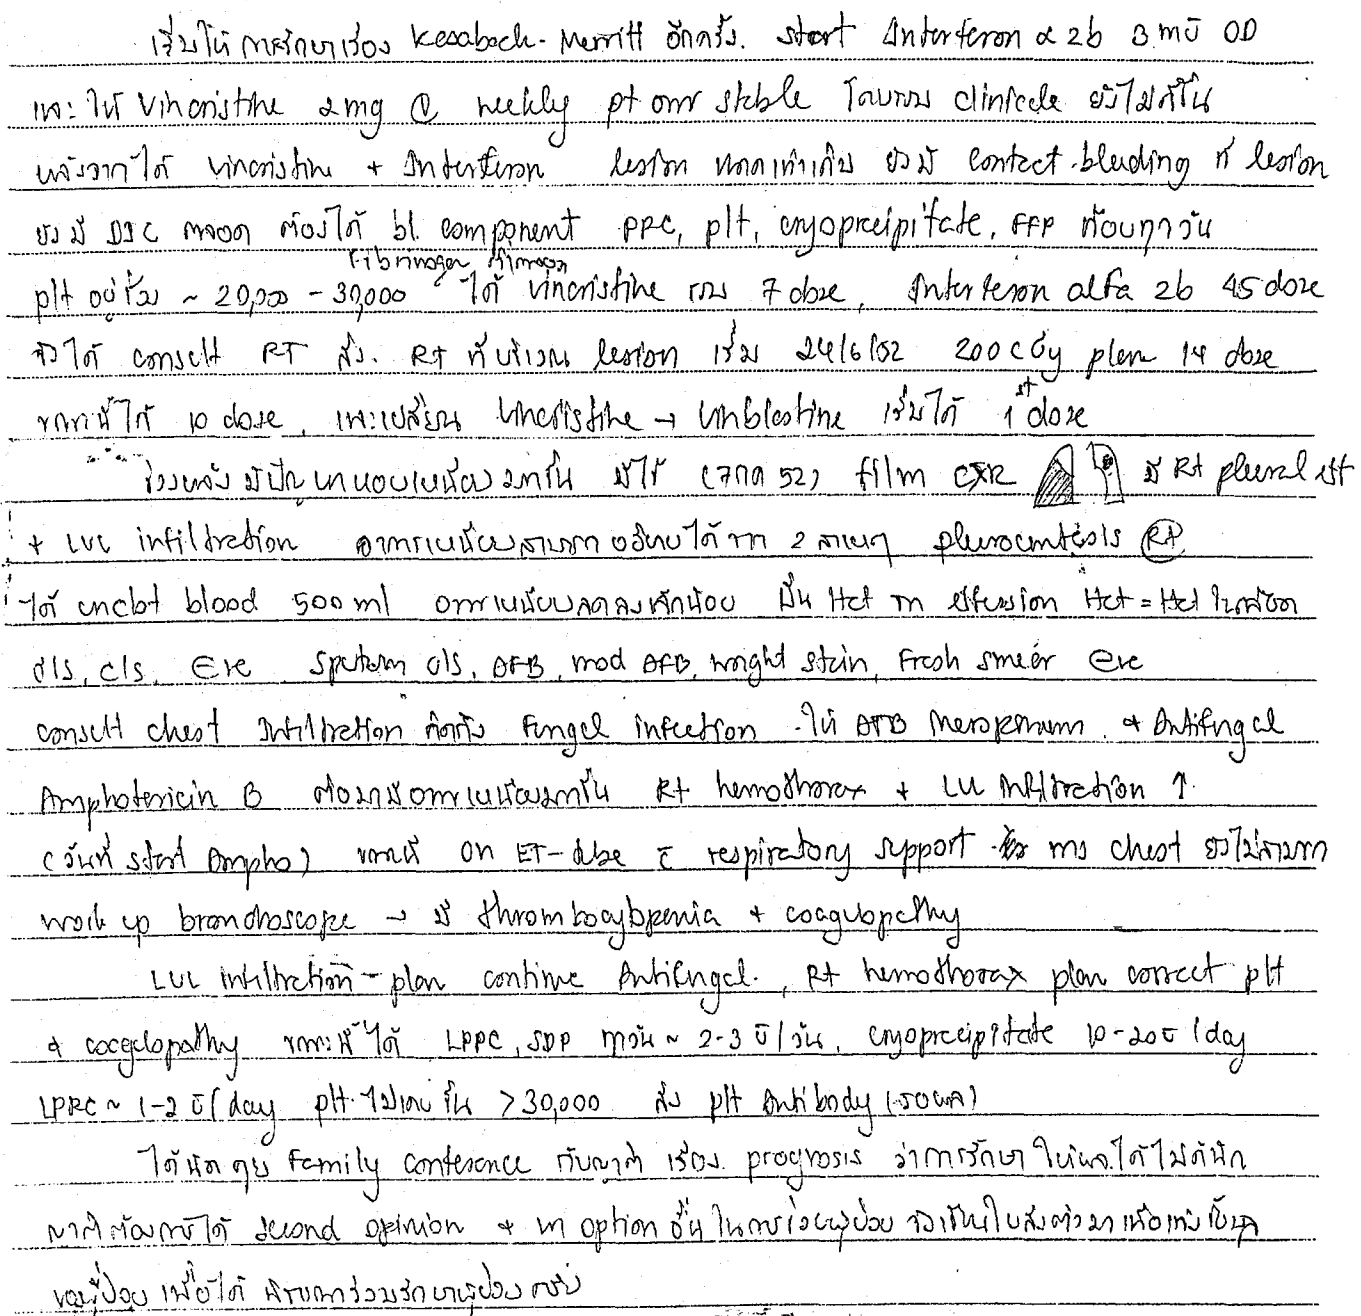 เริ่มให้ การรักษาเรื่อง Kesabach-Merritt อีกครั้ง. start Interferon α 2b 3 mu OD
และ ให้ Vincristine 2mg Ⓥ weekly pt อาการ stable โดยรวม clinicale ยังไม่ดีขึ้น
หลังจากได้ vincristine + Interferon lesion ขนาดเท่าเดิม ยังมี contact-bleeding ที่ lesion
ยังมี DIC ตลอด ต้องได้ bl. component PRC, plt, cryoprecipitate, FFP เกือบทุกวัน
Fibrinogen ต่ำตลอด
plt อยู่ช่วง ~ 20,000 - 30,000 ได้ vincristine รวม 7 dose, Interferon alfa 2b 45 dose
จึงได้ consult RT ส่ง. RT ที่บริเวณ lesion เริ่ม 24/6/52 200 cGy plan 14 dose
ขณะนี้ได้ 10 dose, และเปลี่ยน Vincristine → Vinblastine เริ่มได้ 1st dose
ช่วงหลัง มีปัญหาหอบเหนื่อยมากขึ้น มีไข้ (7 กค 52) film CXR มี Rt plural eff
+ LUL infiltration อาการเหนื่อยสามารถอธิบายได้จาก 2 สาเหตุ pleurocentesis Rt
ได้ unclot blood 500 ml อาการเหนื่อยลดลงเล็กน้อย ปั่น Hct จาก effusion Hct = Hct ในเลือด
G/S, C/S, ⊖ve sputum G/S, AFB, mod AFB, wright stain, Fresh smear ⊖ve
consult chest Infiltration คิดถึง Fungal infection - ให้ ATB Meropenam & Antifungal
Amphotericin B ต่อมามีอาการเหนื่อยมากขึ้น Rt hemothorax + LUL Infiltration ↑
(วันที่ start Ampho) ขณะนี้ on ET-tube c̄ respiratory support ทาง chest ยังไม่สามารถ
work up bronchoscope → มี thrombocytopenia + coagulopathy
LUL Infiltration - plan continue Antifungal., Rt hemothorax plan correct plt
& coagulopathy ขณะนี้ได้ LPPC, SDP ทุกวัน ~ 2-3 U/วัน, cryoprecipitate 10-20 U/day
LPRC ~ 1-2 U/day plt ไม่เคยขึ้น > 30,000 ส่ง plt Antibody (รอผล)
ได้นัด คุย Family conference กับญาติ เรื่อง prognosis ว่าการรักษา ให้ผลได้ไม่ดีนัก
ญาติต้องการได้ second opinion & หา option อื่น ในการช่วยผู้ป่วย จึงเขียนใบส่งตัวมา
ของผู้ป่วย เพื่อได้ พิจารณาร่วมรักษาผู้ป่วย ครับ